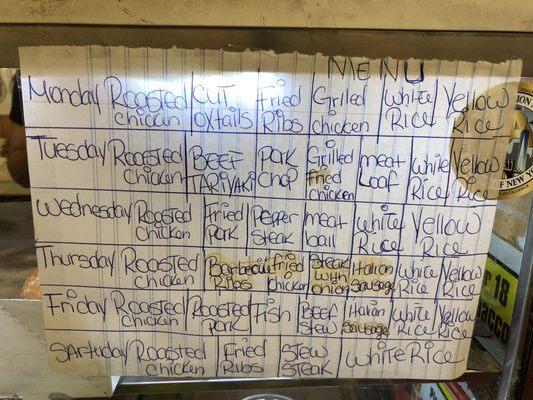 MENU
Monday Roasted chicken CUT oxtails Fried Ribs Grilled chicken white Rice Yellow Rice
Tuesday Roasted chicken BEEF TARiyaki PORK chop Grilled Fried chicken meat Loaf white Rice Yellow Rice
Wednesday Roasted chicken Fried Pork Pepper Steak meat ball white Rice Yellow Rice
Thursday Roasted chicken Barbecue Ribs fried chicken STEAK with onion Italian Sausage white Rice Yellow Rice
Friday Roasted chicken Roasted pork Fish BEEF Stew Italian Sausage white Rice Yellow Rice
SARTuday Roasted chicken Fried Ribs Stew Steak white Rice
OF NEW YORK
18